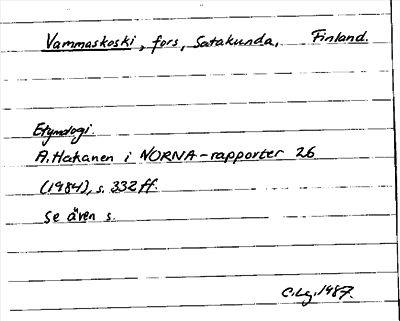 Vammaskoski, fors, Satakunda, Finland.
Etymologi.
A. Hakanen i NORNA-rapporter 26
(1984), s. 332 ff.
Se även s.
C.Lg. 1987.